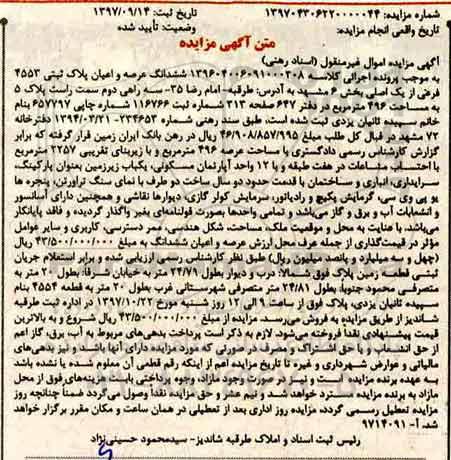 شماره مزایده: ۱۳۹۷۰۴۳۰۶۲۲۰۰۰۰۰۴۴ تاریخ ثبت: ۱۳۹۷/۰۹/۱۴
تاریخ واقعی انجام مزایده: وضعیت: تأیید شده
متن آگهی مزایده
آگهی مزایده اموال غیرمنقول (اسناد رهنی)
به موجب پرونده اجرائی کلاسه ۱۳۹۶۰۴۰۰۶۰۹۱۰۰۰۳۰۸ ششدانگ عرصه و اعیان پلاک ثبتی ۴۵۵۳
فرعی از یک اصلی بخش ۶ مشهد به آدرس: طرقبه- امام رضا ۳۵- سه راهی دوم سمت راست پلاک ۵
به مساحت ۴۹۶ مترمربع در دفتر ۶۴۷ صفحه ۳۱۳ شماره ثبت ۱۱۶۷۶۶ شماره چاپی ۶۵۷۷۹۷ بنام
خانم سپیده ثانیان یزدی ثبت شده است، طبق سند رهنی شماره ۲۳۴۶۵۳- ۱۳۹۴/۰۳/۲۱ دفترخانه
۷۲ مشهد در قبال کل طلب مبلغ ۴۶/۹۰۸/۸۵۷/۹۹۵ ریال در رهن بانک ایران زمین قرار گرفته که برابر
گزارش کارشناس رسمی دادگستری با مساحت عرصه ۴۹۶ مترمربع و با زیربنای تقریبی ۲۲۵۷ مترمربع
با احتساب مشاعات در هفت طبقه و با ۱۲ واحد آپارتمان مسکونی، یکباب زیرزمین بعنوان پارکینگ،
سرایداری، انباری و ساختمان با قدمت حدود دو سال ساخت دو طرف با نمای سنگ تراورتن، پنجره ها
یو پی وی سی، گرمایش پکیج و رادیاتور، سرمایش کولر گازی، دیوارها نقاشی و همچنین دارای آسانسور
و انشعابات آب و برق و گاز می‌باشد و تمامی واحدها بصورت قولنامه‌ای بغیر واگذار گردیده و فاقد پایانکار
می‌باشد، با عنایت به محل و موقعیت ملک، مساحت، شکل هندسی، ممر دسترسی، کاربری و سایر عوامل
مؤثر در قیمت‌گذاری از جمله عرف محل ارزش عرصه و اعیان ششدانگ به مبلغ ۴۳/۵۰۰/۰۰۰/۰۰۰ ریال
(چهل و سه میلیارد و پانصد میلیون ریال) طبق نظر کارشناس رسمی ارزیابی شده و برابر استعلام جریان
ثبتی قطعات زمین پلاک فوق شمالا: درب و دیوار بطول ۲۴/۷۹ متر به خیابان شرقا: بطول ۲۰ متر به
متصرفی محمود جنوبا: بطول ۲۴/۸۱ متر متصرفی شهرستانی غرب بطول ۲۰ متر به قطعه ۴۵۵۴ بنام
سپیده ثانیان یزدی، پلاک فوق از ساعت ۹ الی ۱۲ روز شنبه مورخ ۱۳۹۷/۱۰/۲۲ در اداره ثبت طرقبه
شاندیز از طریق مزایده به فروش می‌رسد. مزایده از مبلغ ۴۳/۵۰۰/۰۰۰/۰۰۰ ریال شروع و به بالاترین
قیمت پیشنهادی نقداً فروخته می‌شود، لازم به ذکر است پرداخت بدهی‌های مربوط به آب، برق، گاز اعم
از حق انشعاب و یا حق اشتراک و مصرف در صورتی که مورد مزایده دارای آنها باشد و نیز بدهی‌های
مالیاتی و عوارض شهرداری و غیره تا تاریخ مزایده اعم از اینکه رقم قطعی آن معلوم شده یا نشده باشد
به عهده برنده مزایده است و نیز در صورت وجود مازاد، وجوه پرداختی بابت هزینه‌های فوق از محل
مازاد به برنده مزایده مسترد خواهد شد و نیم عشر و حق مزایده نقداً وصول می‌گردد ضمناً چنانچه روز
مزایده تعطیل رسمی گردد، مزایده روز اداری بعد از تعطیلی در همان ساعت و مکان مقرر برگزار خواهد
شد. آ- ۹۷۱۴۰۹۱
رئیس ثبت اسناد و املاک طرقبه شاندیز- سیدمحمود حسینی‌نژاد